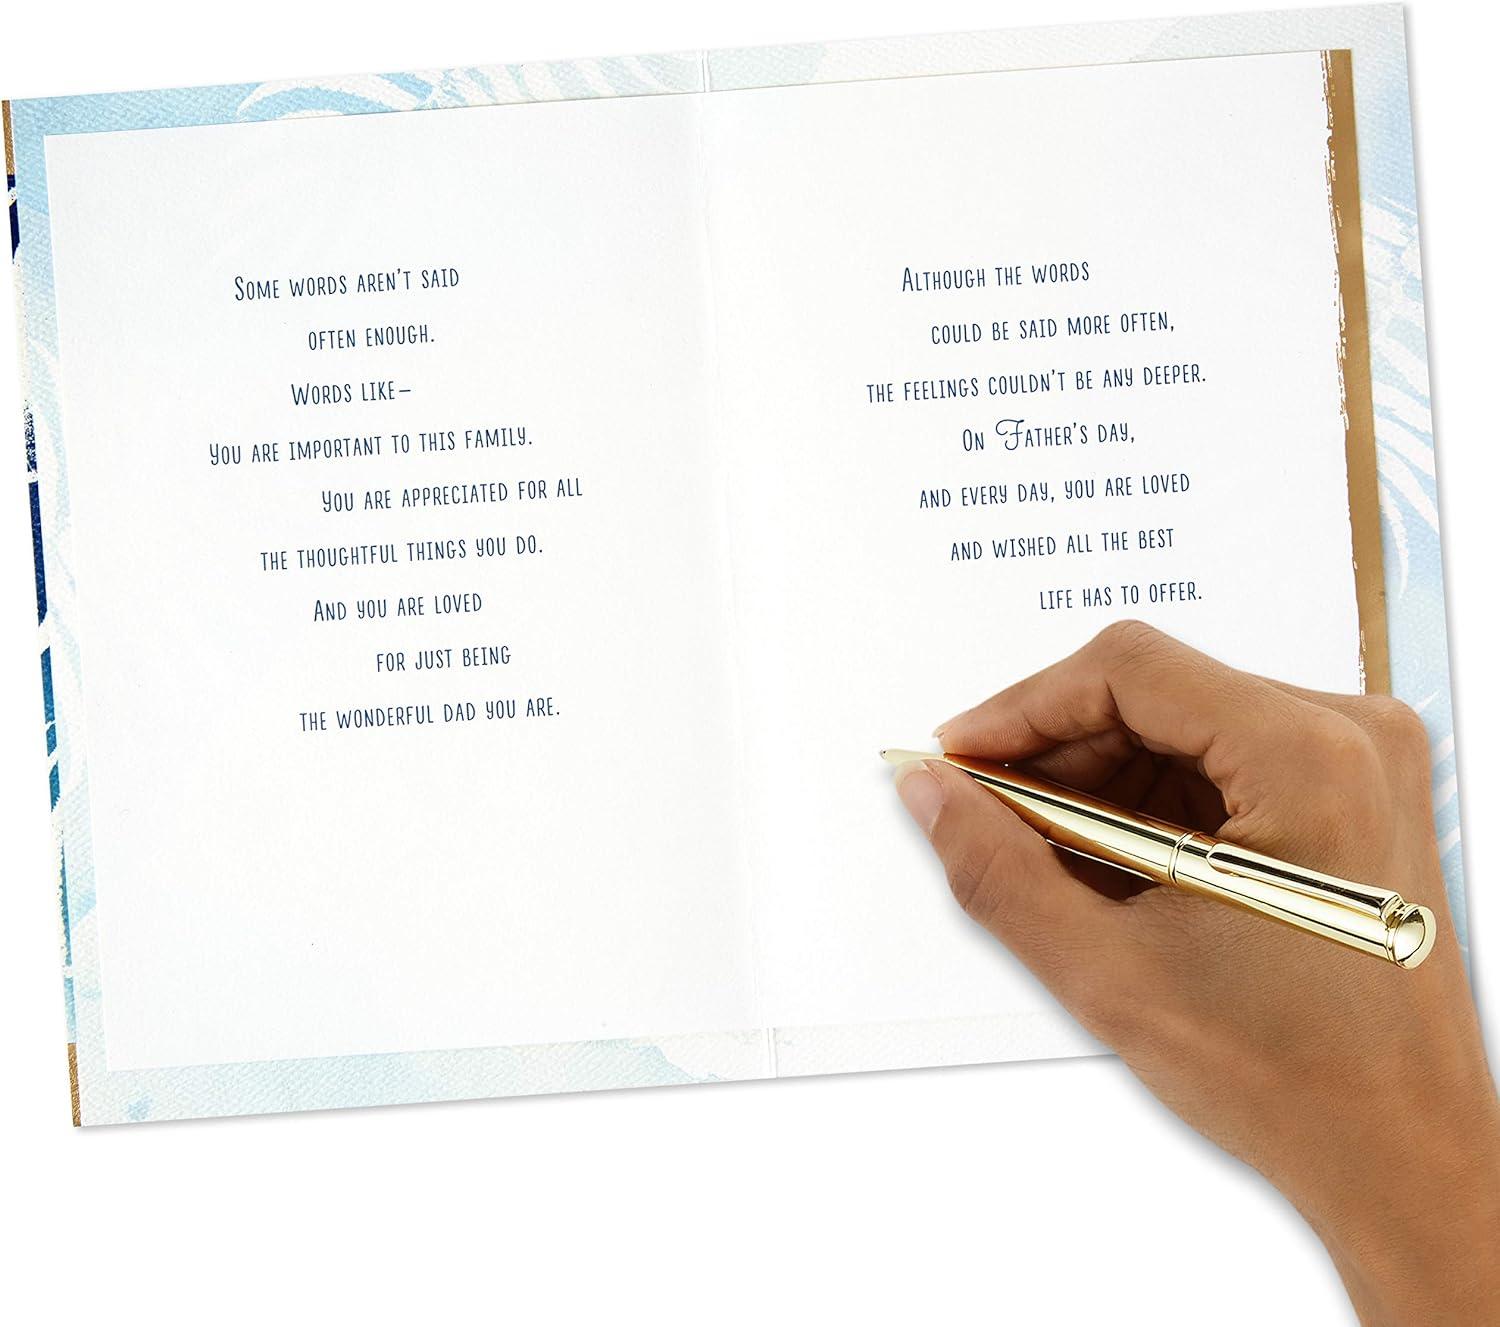 Some words aren't said
often enough.
Words like—
You are important to this family.
You are appreciated for all
the thoughtful things you do.
And you are loved
for just being
the wonderful dad you are.
Although the words
could be said more often,
the feelings couldn't be any deeper.
On Father's day,
and every day, you are loved
and wished all the best
life has to offer.